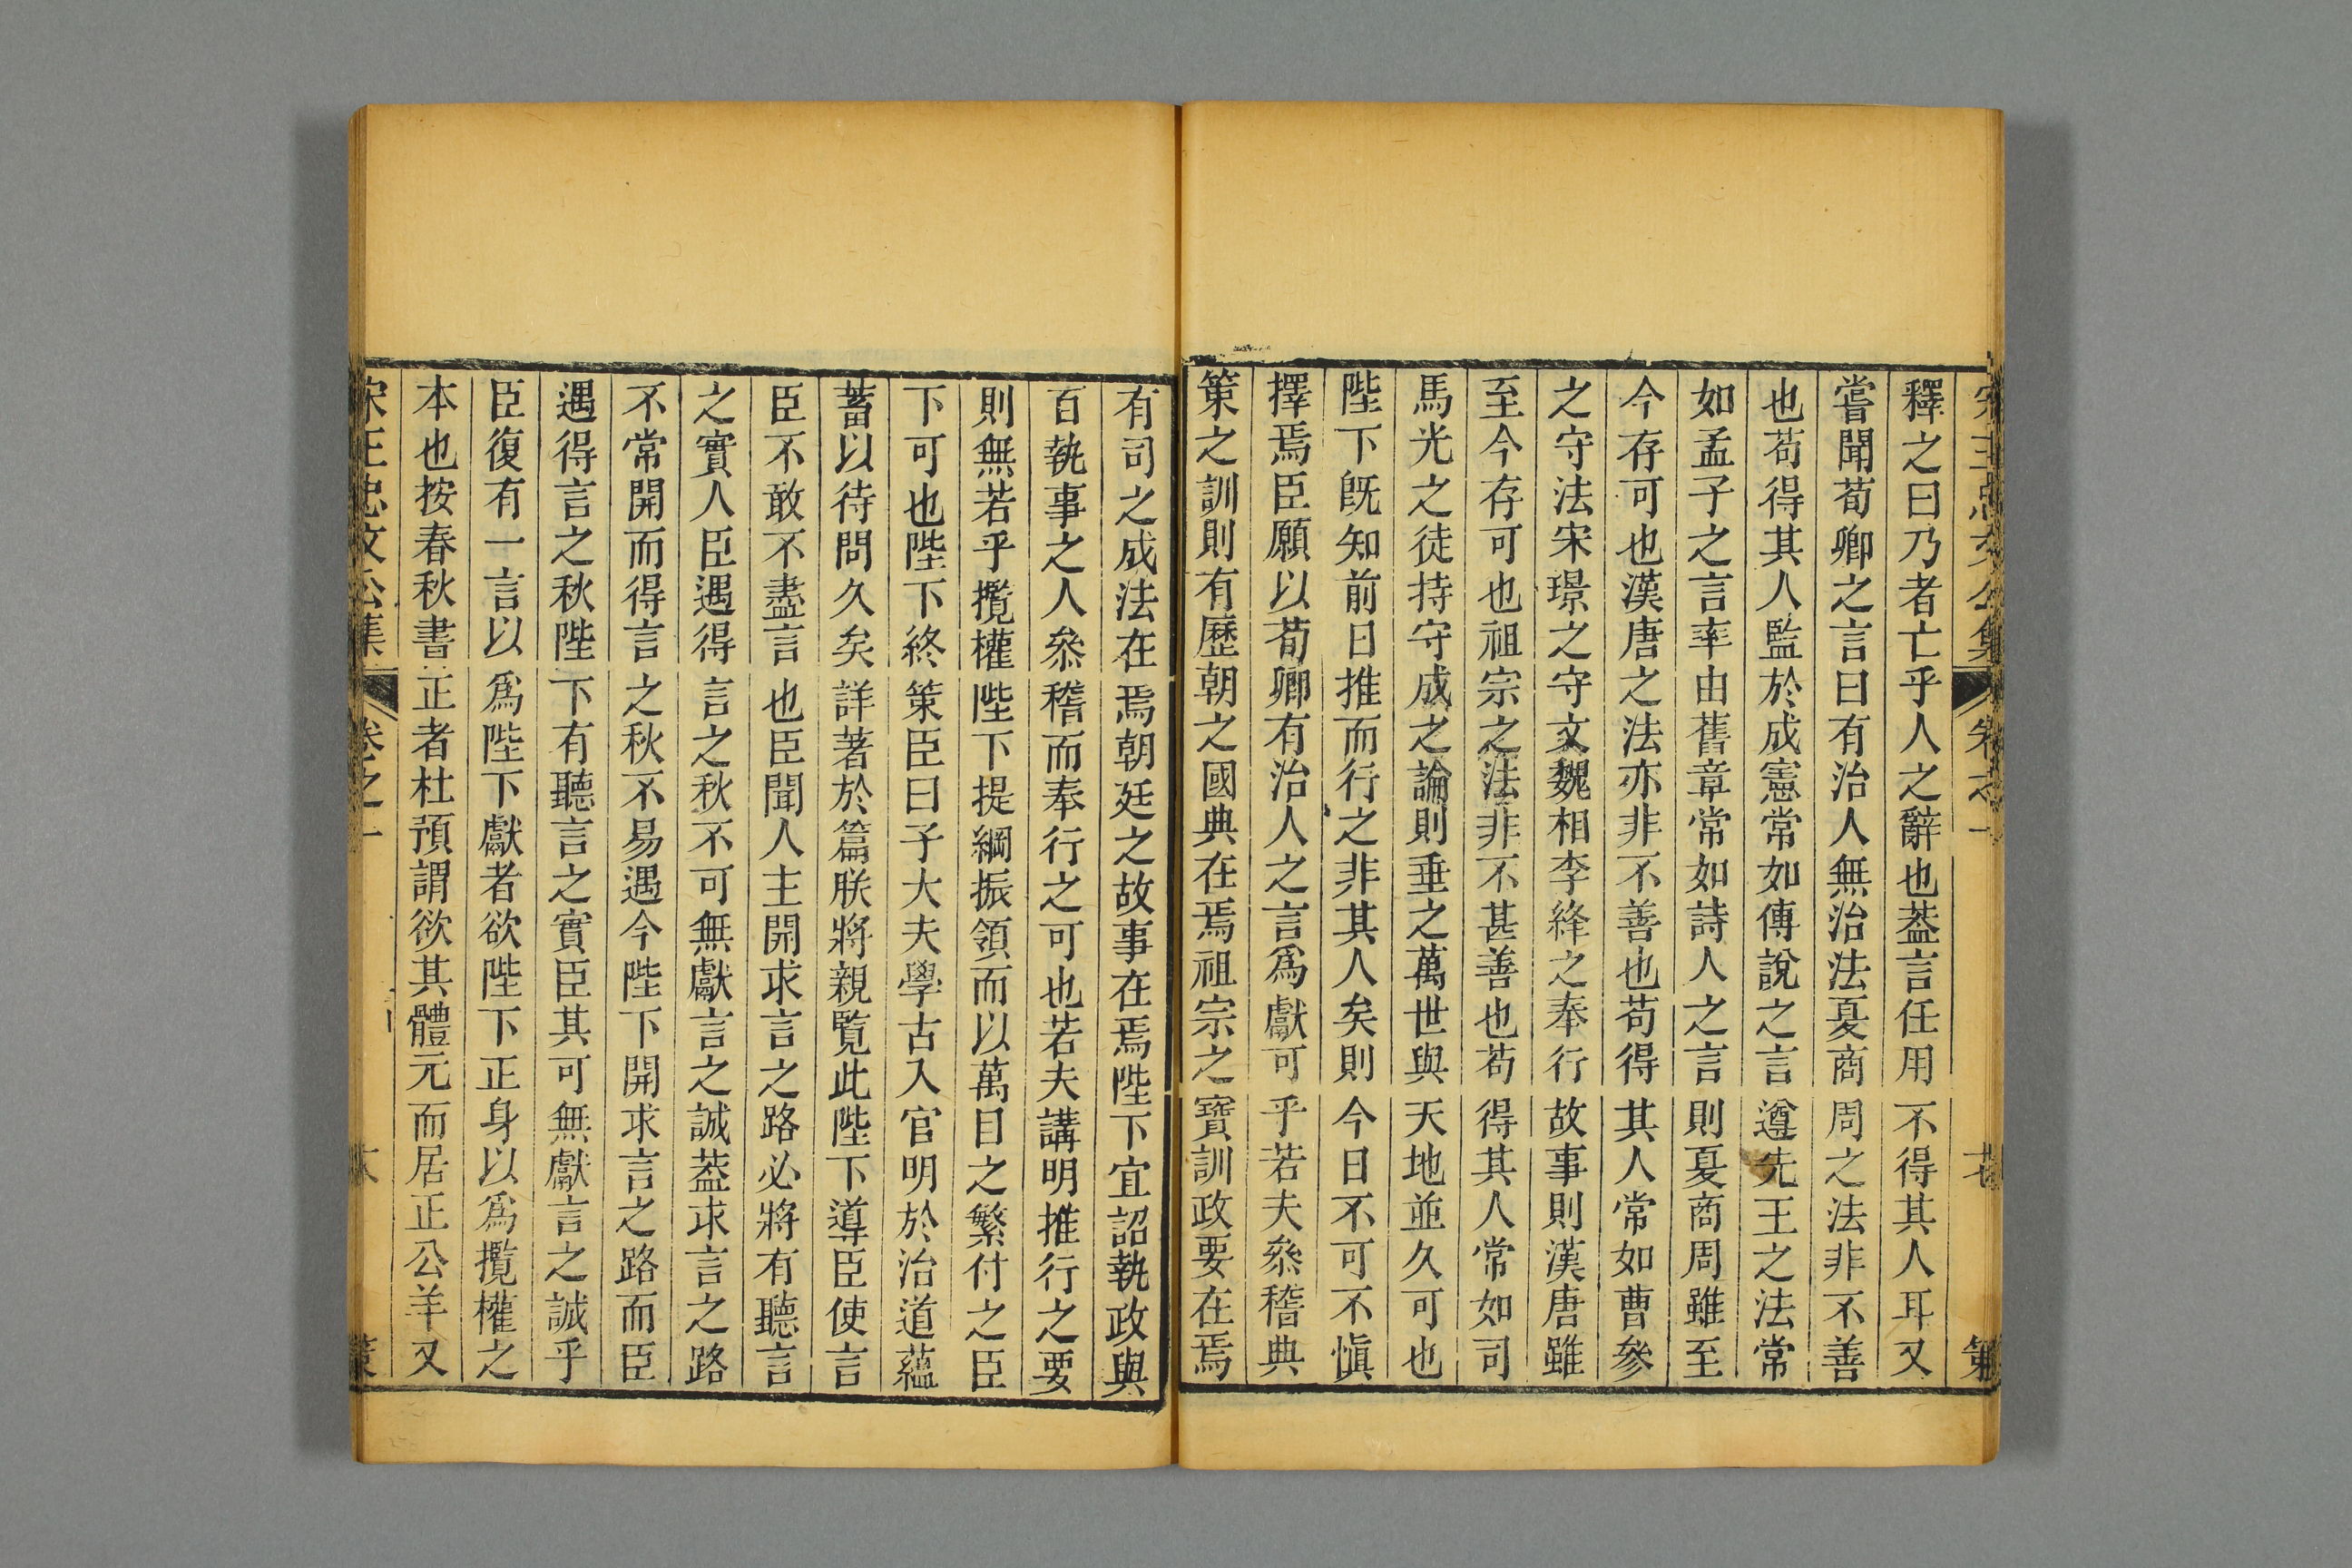 釋之曰乃者亡乎人之辭也葢言任用不得其人耳又
嘗聞荀卿之言曰有治人無治法夏商周之法非不善
也苟得其人監於成憲常如傅說之言遵先王之法常
如孟子之言率由舊章常如詩人之言則夏商周雖至
今存可也漢唐之法亦非不善也苟得其人常如曹參
之守法宋璟之守文魏相李絳之奉行故事則漢唐雖
至今存可也祖宗之法非不甚善也苟得其人常如司
馬光之徒持守成之論則垂之萬世與天地並久可也
陛下旣知前日推而行之非其人矣則今日不可不愼
擇焉臣願以荀卿有治人之言爲獻可乎若夫叅稽典
策之訓則有歷朝之國典在焉祖宗之寶訓政要在焉
有司之成法在焉朝廷之故事在焉陛下宜詔執政與
百執事之人叅稽而奉行之可也若夫講明推行之要
則無若乎攬權陛下提綱振領而以萬目之繁付之臣
下可也陛下終策臣曰子大夫學古入官明於治道蘊
蓄以待問久矣詳著於篇朕將親覽此陛下導臣使言
臣不敢不盡言也臣聞人主開求言之路必將有聽言
之實人臣遇得言之秋不可無獻言之誠葢求言之路
不常開而得言之秋不易遇今陛下開求言之路而臣
遇得言之秋陛下有聽言之實臣其可無獻言之誠乎
臣復有一言以爲陛下獻者欲陛下正身以爲攬權之
本也按春秋書正者杜預謂欲其體元而居正公羊又
宋王忠文公集 卷之一